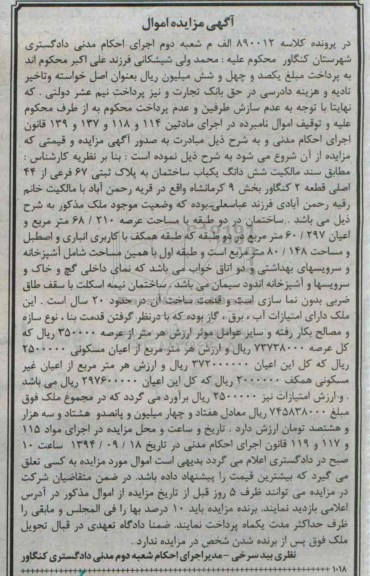 آگهی مزایده اموال
در پرونده کلاسه ۸۹۰۰۱۲ الف م شعبه دوم اجرای احکام مدنی دادگستری
شهرستان کنگاور محکوم علیه : محمد ولی شیشکانی فرزند علی اکبر محکوم اند
به پرداخت مبلغ یکصد و چهل و شش میلیون ریال بعنوان اصل خواسته وتاخیر
تادیه و هزینه دادرسی در حق بانک تجارت و نیز پرداخت نیم عشر دولتی . که
نهایتا با توجه به عدم سازش طرفین و عدم پرداخت محکوم به از طرف محکوم
علیه و توقیف اموال نامبرده در اجرای مادتین ۱۱۴ و ۱۱۸ و ۱۳۷ و ۱۳۹ قانون
اجرای احکام مدنی و به شرح ذیل مبادرت به صدور آگهی مزایده و قیمتی که
مزایده از آن شروع می شود به شرح ذیل نموده است : بنا بر نظریه کارشناس :
مطابق سند مالکیت شش دانگ یکباب ساختمان به پلاک ثبتی ۶۷ فرعی از ۴۴
اصلی قطعه ۲ کنگاور بخش ۹ کرمانشاه واقع در قریه رحمن آباد با مالکیت خانم
رقیه رحمن آبادی فرزند عباسعلی بوده که وضعیت موجود ملک مذکور به شرح
ذیل می باشد . ساختمان در دو طبقه با مساحت عرصه ۲۱۰ / ۶۸ متر مربع و
اعیان ۲۹۷ / ۶۰ متر مربع در دو طبقه که طبقه همکف با کاربری انباری و اصطبل
و مساحت ۱۴۸ / ۸۰ متر مربع است و طبقه اول با همین مساحت شامل آشپزخانه
و سرویسهای بهداشتی و دو اتاق خواب می باشد که نمای داخلی گچ و خاک و
سرویسها و آشپزخانه اندود سیمان می باشد . ساختمان نیمه اسکلت با سقف طاق
ضربی بدون نما سازی است و قدمت ساختمان در حدود ۲۰ سال است . این
ملک دارای امتیازات آب ، برق ، گاز بوده که با درنظر گرفتن قدمت بنا ، نوع سازه
و مصالح بکار رفته و سایر عوامل موثر ارزش هر متر از عرصه ۳۵۰۰۰۰ ریال که
کل عرصه ۷۳۷۳۸۰۰۰ ریال و ارزش هر متر مربع از اعیان مسکونی ۲۵۰۰۰۰۰
ریال که کل این اعیان ۳۷۲۰۰۰۰۰۰ ریال و ارزش هر متر مربع از اعیان غیر
مسکونی همکف ۲۰۰۰۰۰۰ ریال که کل این اعیان ۲۹۷۶۰۰۰۰۰ ریال می باشد
. و ارزش امتیازات نیز ۲۵۰۰۰۰۰ ریال برآورد می گردد که در مجموع ملک فوق
مبلغ ۷۴۵۸۳۸۰۰۰ ریال معادل هفتاد و چهار میلیون و پانصدو هشتاد و سه هزار
و هشتصد تومان ارزش دارد . تاریخ و ساعت و محل مزایده در اجرای مواد ۱۱۵
و ۱۱۷ و ۱۱۹ قانون اجرای احکام مدنی در تاریخ ۱۸ / ۰۹ / ۱۳۹۴ ساعت ۱۰
صبح در دادگستری اعلام می گردد بدیهی است اموال مورد مزایده به کسی تعلق
می گیرد که بیشترین قیمت را پیشنهاد داده باشد. در ضمن متقاضیان شرکت
در مزایده می توانند ظرف ۵ روز قبل از تاریخ مزایده از اموال مذکور در آدرس
اعلامی بازدید نمایند. برنده مزایده باید ۱۰ درصد بها را فی المجلس و مابقی را
ظرف حداکثر مدت یکماه پرداخت نمایند. ضمنا دادگاه تعهدی در قبال تحویل
ملک فوق پس از برنده شدن شخص در مزایده ندارد .
نظری بید سرخی – مدیراجرای احکام شعبه دوم مدنی دادگستری کنگاور
۱۰۱۸